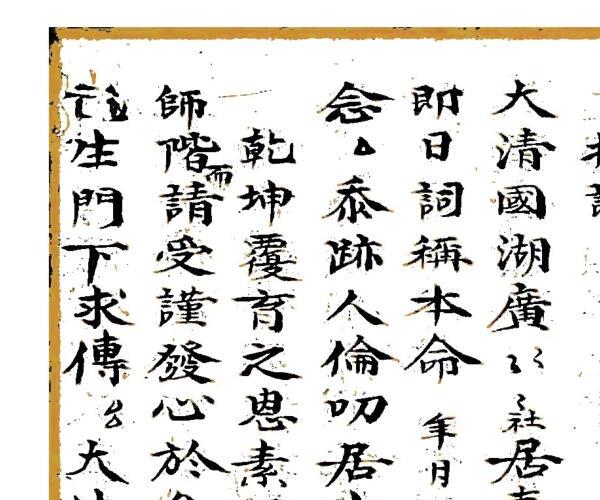 大清國湖廣〻〻社居
即日詞稱本命年月
念厶忝跡人倫叨居
乾坤覆育之恩素
師階而請受謹發心於
生門下求傳厶大